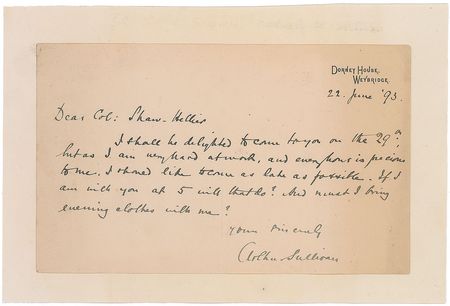 Dorney House,
Weybridge.
22. June '93.
Dear Col: Shaw-Hellier
I shall be delighted to come to you on the 29th,
but as I am very hard at work, and every hour is precious
to me, I should like to come as late as possible. If I
am with you at 5 will that do? And must I bring
evening clothes with me?
Yours sincerely
Arthur Sullivan